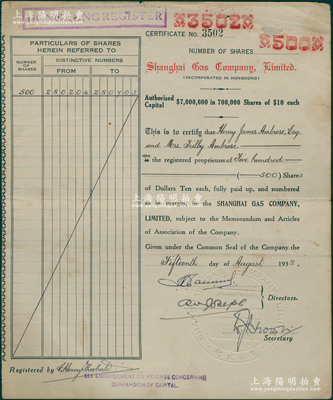 上海陽明拍賣
REGISTER
3502
500
CERTIFICATE No. 3502
NUMBER OF SHARES
Shanghai Gas Company, Limited.
(INCORPORATED IN HONGKONG)
Authorized Capital $7,000,000 in 700,000 Shares of $10 each
PARTICULARS OF SHARES
HEREIN REFERRED TO
NUMBER OF SHARES
DISTINCTIVE NUMBERS
FROM TO
500 250204 250703
This is to certify that Henry James Ambrose, Esq.
and Mrs. Ambrose
the registered proprietors of Five hundred
(500) Shares
of Dollars Ten each, fully paid up, and numbered
as in margin, in the SHANGHAI GAS COMPANY,
LIMITED, subject to the Memorandum and Articles
of Association of the Company.
Given under the Common Seal of the Company the
Fifteenth day of August 1935.
Directors.
Secretary
Registered by
SEE ENDORSEMENT ON REVERSE CONCERNING
CONVERSION OF CAPITAL.
上海陽明拍賣